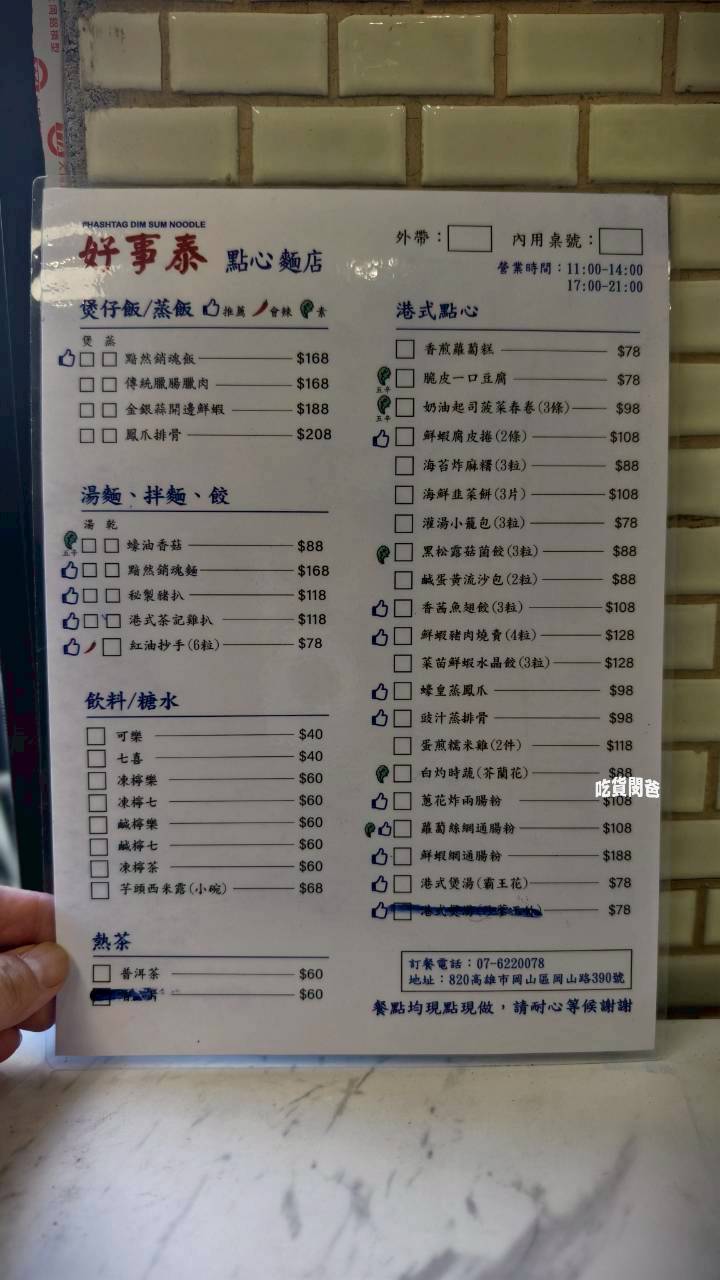 #HASHTAG DIM SUM NOODLE
好事泰 點心麵店
外帶： 內用桌號：
營業時間：11:00-14:00
17:00-21:00
煲仔飯/蒸飯 推薦 會辣 素
煲 蒸
黯然銷魂飯 $168
傳統臘腸臘肉 $168
金銀蒜開邊鮮蝦 $188
鳳爪排骨 $208
湯麵、拌麵、餃
湯 乾
五辛 蠔油香菇 $88
黯然銷魂麵 $168
秘製豬扒 $118
港式茶記雞扒 $118
紅油抄手(6粒) $78
飲料/糖水
可樂 $40
七喜 $40
凍檸樂 $60
凍檸七 $60
鹹檸樂 $60
鹹檸七 $60
凍檸茶 $60
芋頭西米露(小碗) $68
熱茶
普洱茶 $60
$60
港式點心
香煎蘿蔔糕 $78
五辛 脆皮一口豆腐 $78
五辛 奶油起司菠菜春卷(3條) $98
鮮蝦腐皮捲(2條) $108
海苔炸麻糬(3粒) $88
海鮮韭菜餅(3片) $108
灌湯小籠包(3粒) $78
黑松露菇菌餃(3粒) $88
鹹蛋黃流沙包(2粒) $88
香茜魚翅餃(3粒) $108
鮮蝦豬肉燒賣(4粒) $128
菜苗鮮蝦水晶餃(3粒) $128
蠔皇蒸鳳爪 $98
豉汁蒸排骨 $98
蛋煎糯米雞(2件) $118
白灼時蔬(芥蘭花) $88
蔥花炸兩腸粉 $108
蘿蔔絲網通腸粉 $108
鮮蝦網通腸粉 $188
港式煲湯(霸王花) $78
港式煲湯 $78
訂餐電話：07-6220078
地址：820高雄市岡山區岡山路390號
餐點均現點現做，請耐心等候謝謝
吃貨閔爸